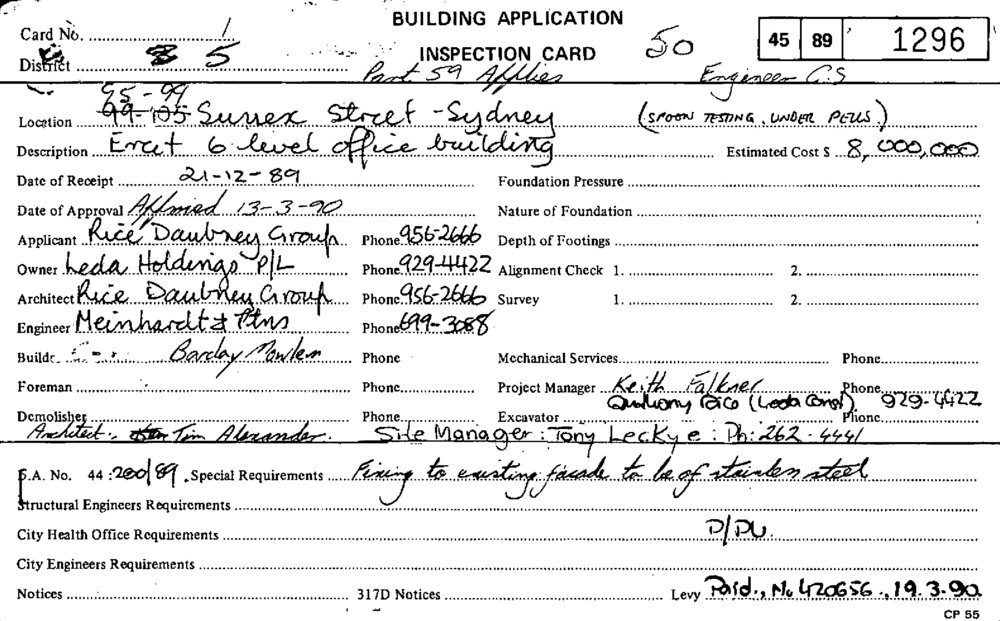 BUILDING APPLICATION
Card No. 1
INSPECTION CARD 50 45 89 1296
District 5 Part 59 Applies Engineer G.S
95-99
Location 99-105 Sussex Street - Sydney (SPOON TESTING. UNDER PERS.)
Description Erect 6 level office building Estimated Cost $ 8,000,000
Date of Receipt 21-12-89 Foundation Pressure
Date of Approval Affirmed 13-3-90 Nature of Foundation
Applicant Rice Daubney Group Phone 956-2666 Depth of Footings
Owner Leda Holdings P/L Phone 929-4422 Alignment Check 1. 2.
Architect Rice Daubney Group Phone 956-2666 Survey 1. 2.
Engineer Meinhardt & Ptns Phone 699-3088
Builder Barclay Mowlem Phone Mechanical Services Phone
Foreman Phone Project Manager Keith Falkner Phone
Anthony Rice (Leda Const) 929-4422
Demolisher Phone Excavator Phone
Architect: Tim Alexander. Site Manager: Tony Leckye: Ph: 262-4441
B.A. No. 44:200/89. Special Requirements Fixing to existing facade to be of stainless steel
Structural Engineers Requirements
City Health Office Requirements D/DU.
City Engineers Requirements
Notices 317D Notices Levy Paid., No 420656., 19.3.90.
CP 55